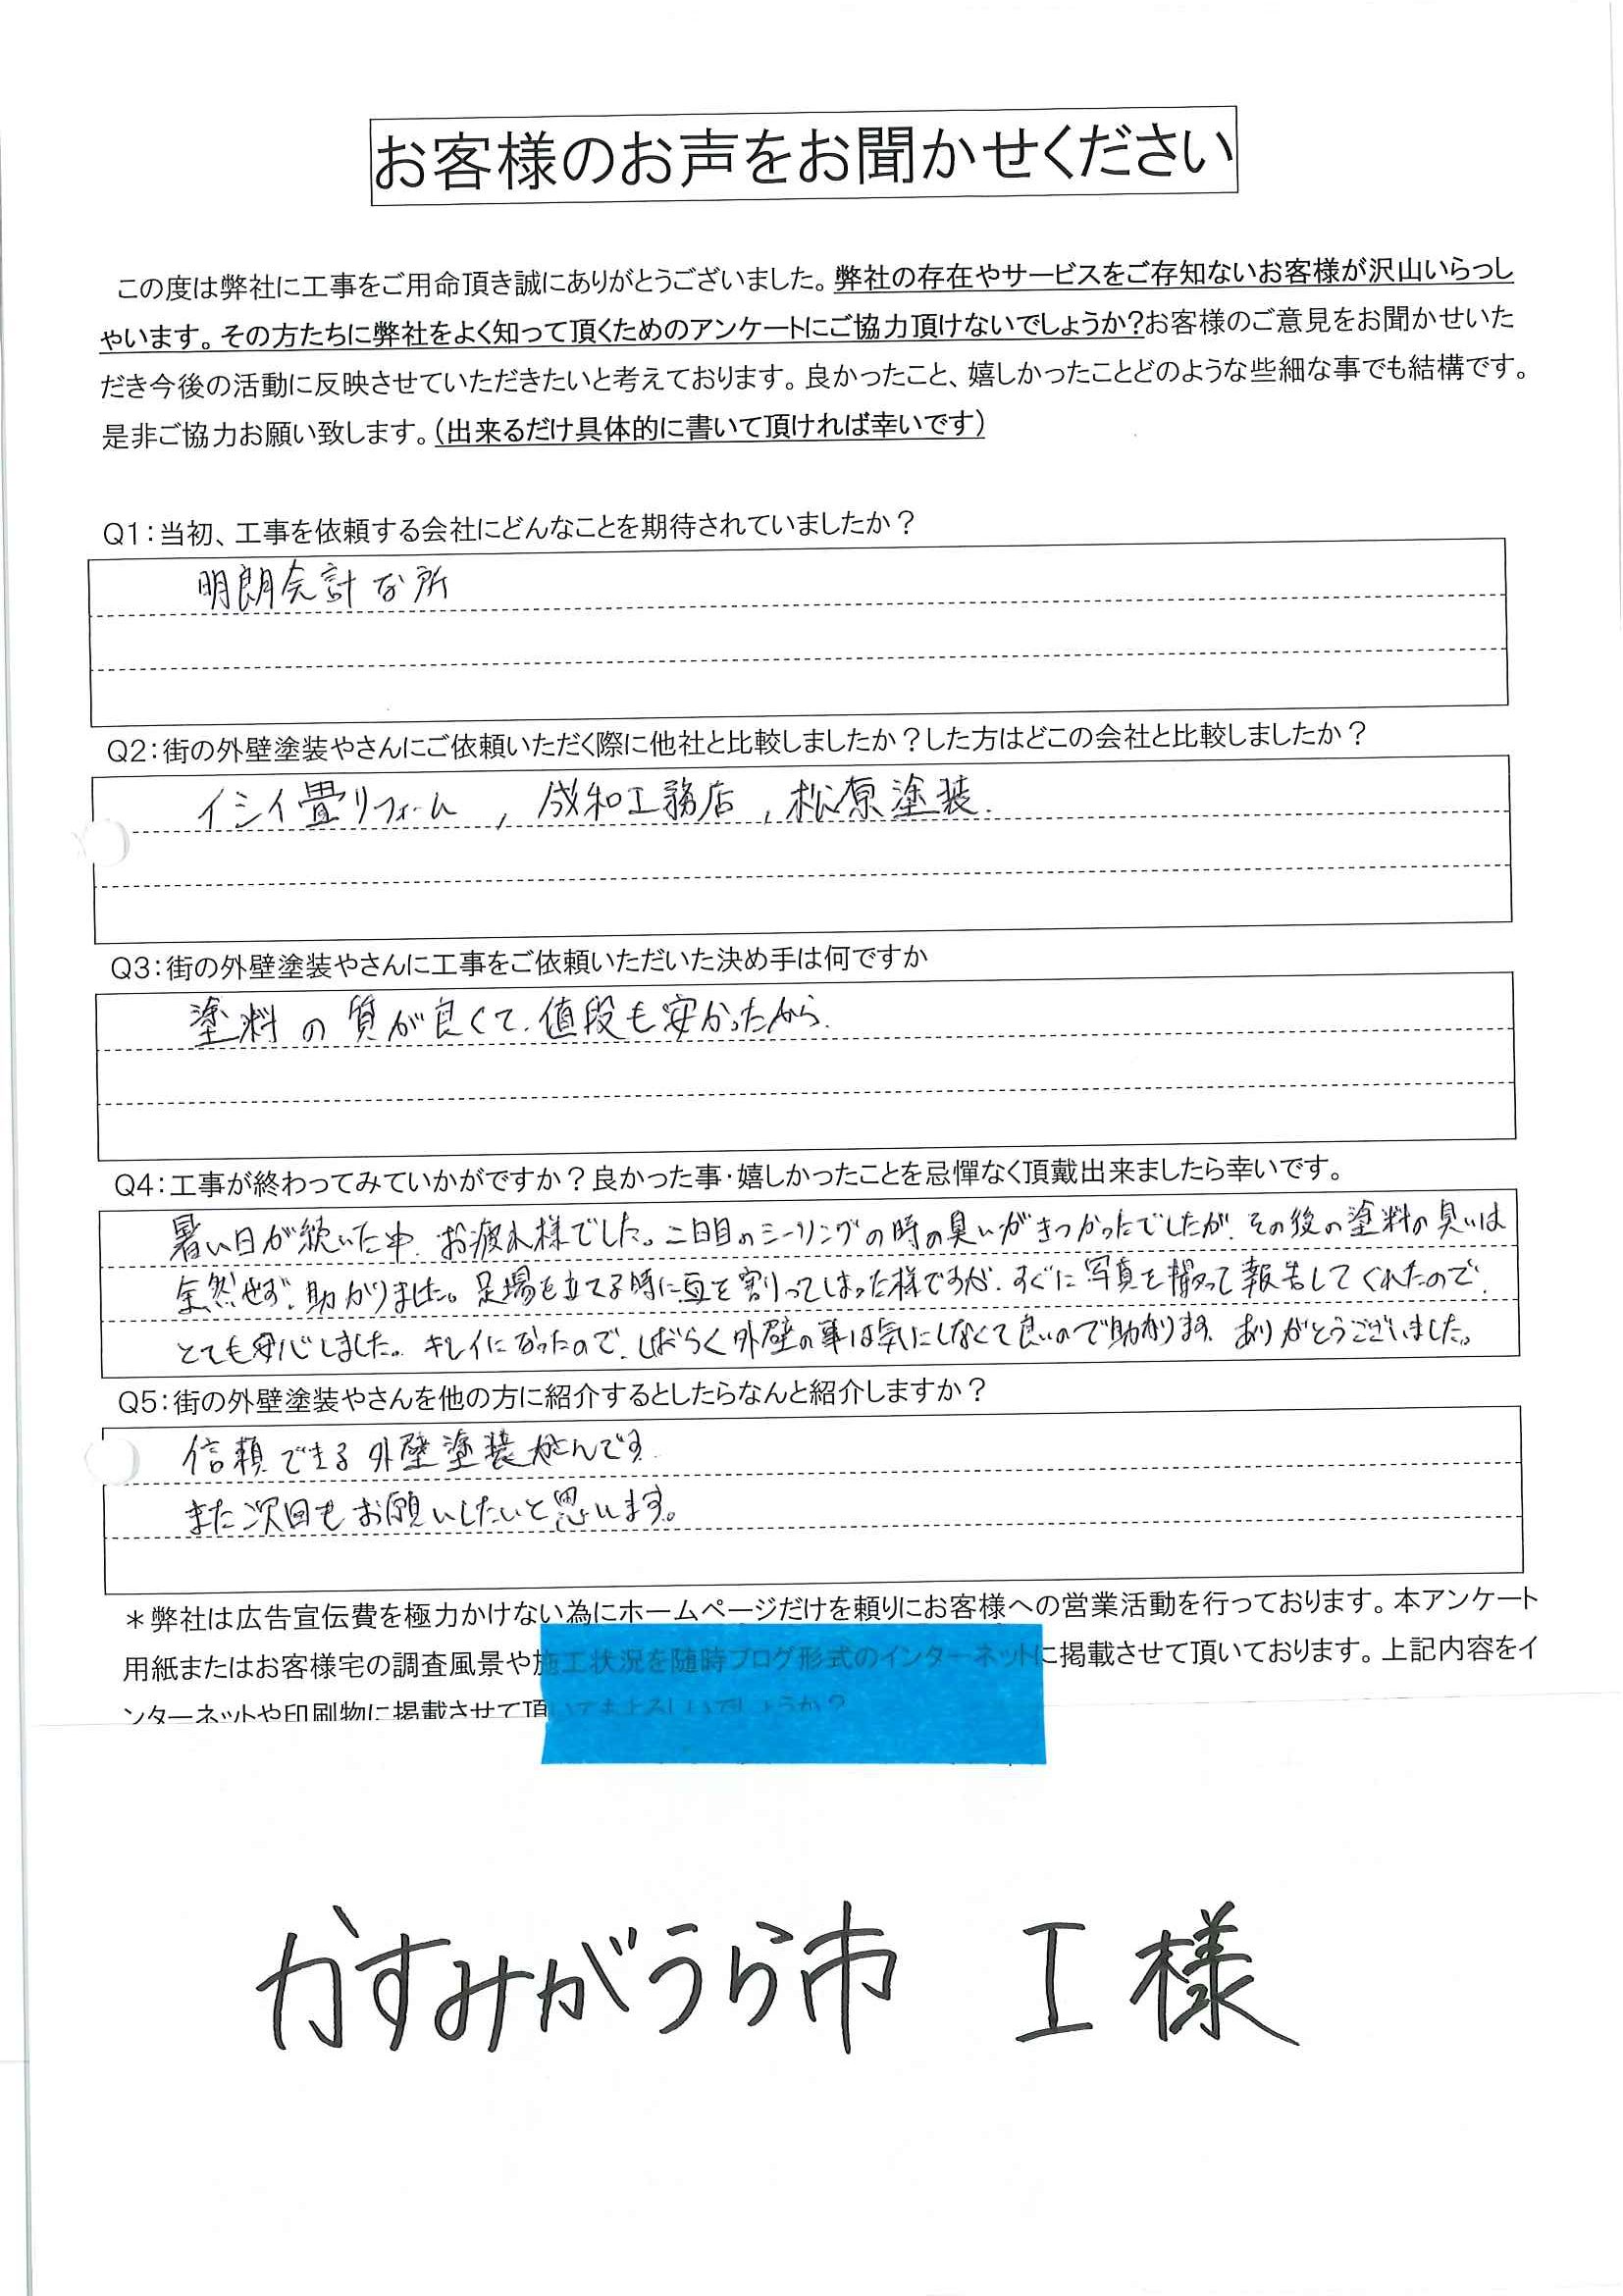 お客様のお声をお聞かせください
この度は弊社に工事をご用命頂き誠にありがとうございました。弊社の存在やサービスをご存知ないお客様が沢山いらっし
ゃいます。その方たちに弊社をよく知って頂くためのアンケートにご協力頂けないでしょうか?お客様のご意見をお聞かせいた
だき今後の活動に反映させていただきたいと考えております。良かったこと、嬉しかったことどのような些細な事でも結構です。
是非ご協力お願い致します。(出来るだけ具体的に書いて頂ければ幸いです)
Q1:当初、工事を依頼する会社にどんなことを期待されていましたか?
明朗会計な所
Q2:街の外壁塗装やさんにご依頼いただく際に他社と比較しましたか?した方はどこの会社と比較しましたか?
イシイ畳リフォーム , 成和工務店 , 松原塗装.
Q3:街の外壁塗装やさんに工事をご依頼いただいた決め手は何ですか
塗料の質が良くて、値段も安かったから.
Q4:工事が終わってみていかがですか?良かった事・嬉しかったことを忌憚なく頂戴出来ましたら幸いです。
暑い日が続いた中、お疲れ様でした。二日目のシーリングの時の臭いがきつかったでしたが、その後の塗料の臭いは
全然せず、助かりました。足場を立てる時に瓦を割ってしまった様ですが、すぐに写真を撮って報告してくれたので、
とても安心しました。キレイになったので、しばらく外壁の事は気にしなくて良いので助かります。ありがとうございました。
Q5:街の外壁塗装やさんを他の方に紹介するとしたらなんと紹介しますか?
信頼できる外壁塗装やさんです.
また次回もお願いしたいと思います。
*弊社は広告宣伝費を極力かけない為にホームページだけを頼りにお客様への営業活動を行っております。本アンケート
用紙またはお客様宅の調査風景や施工状況を随時ブログ形式のインターネットに掲載させて頂いております。上記内容をイ
ンターネットや印刷物に掲載させて頂いてもよろしいでしょうか?
かすみがうら市 I様